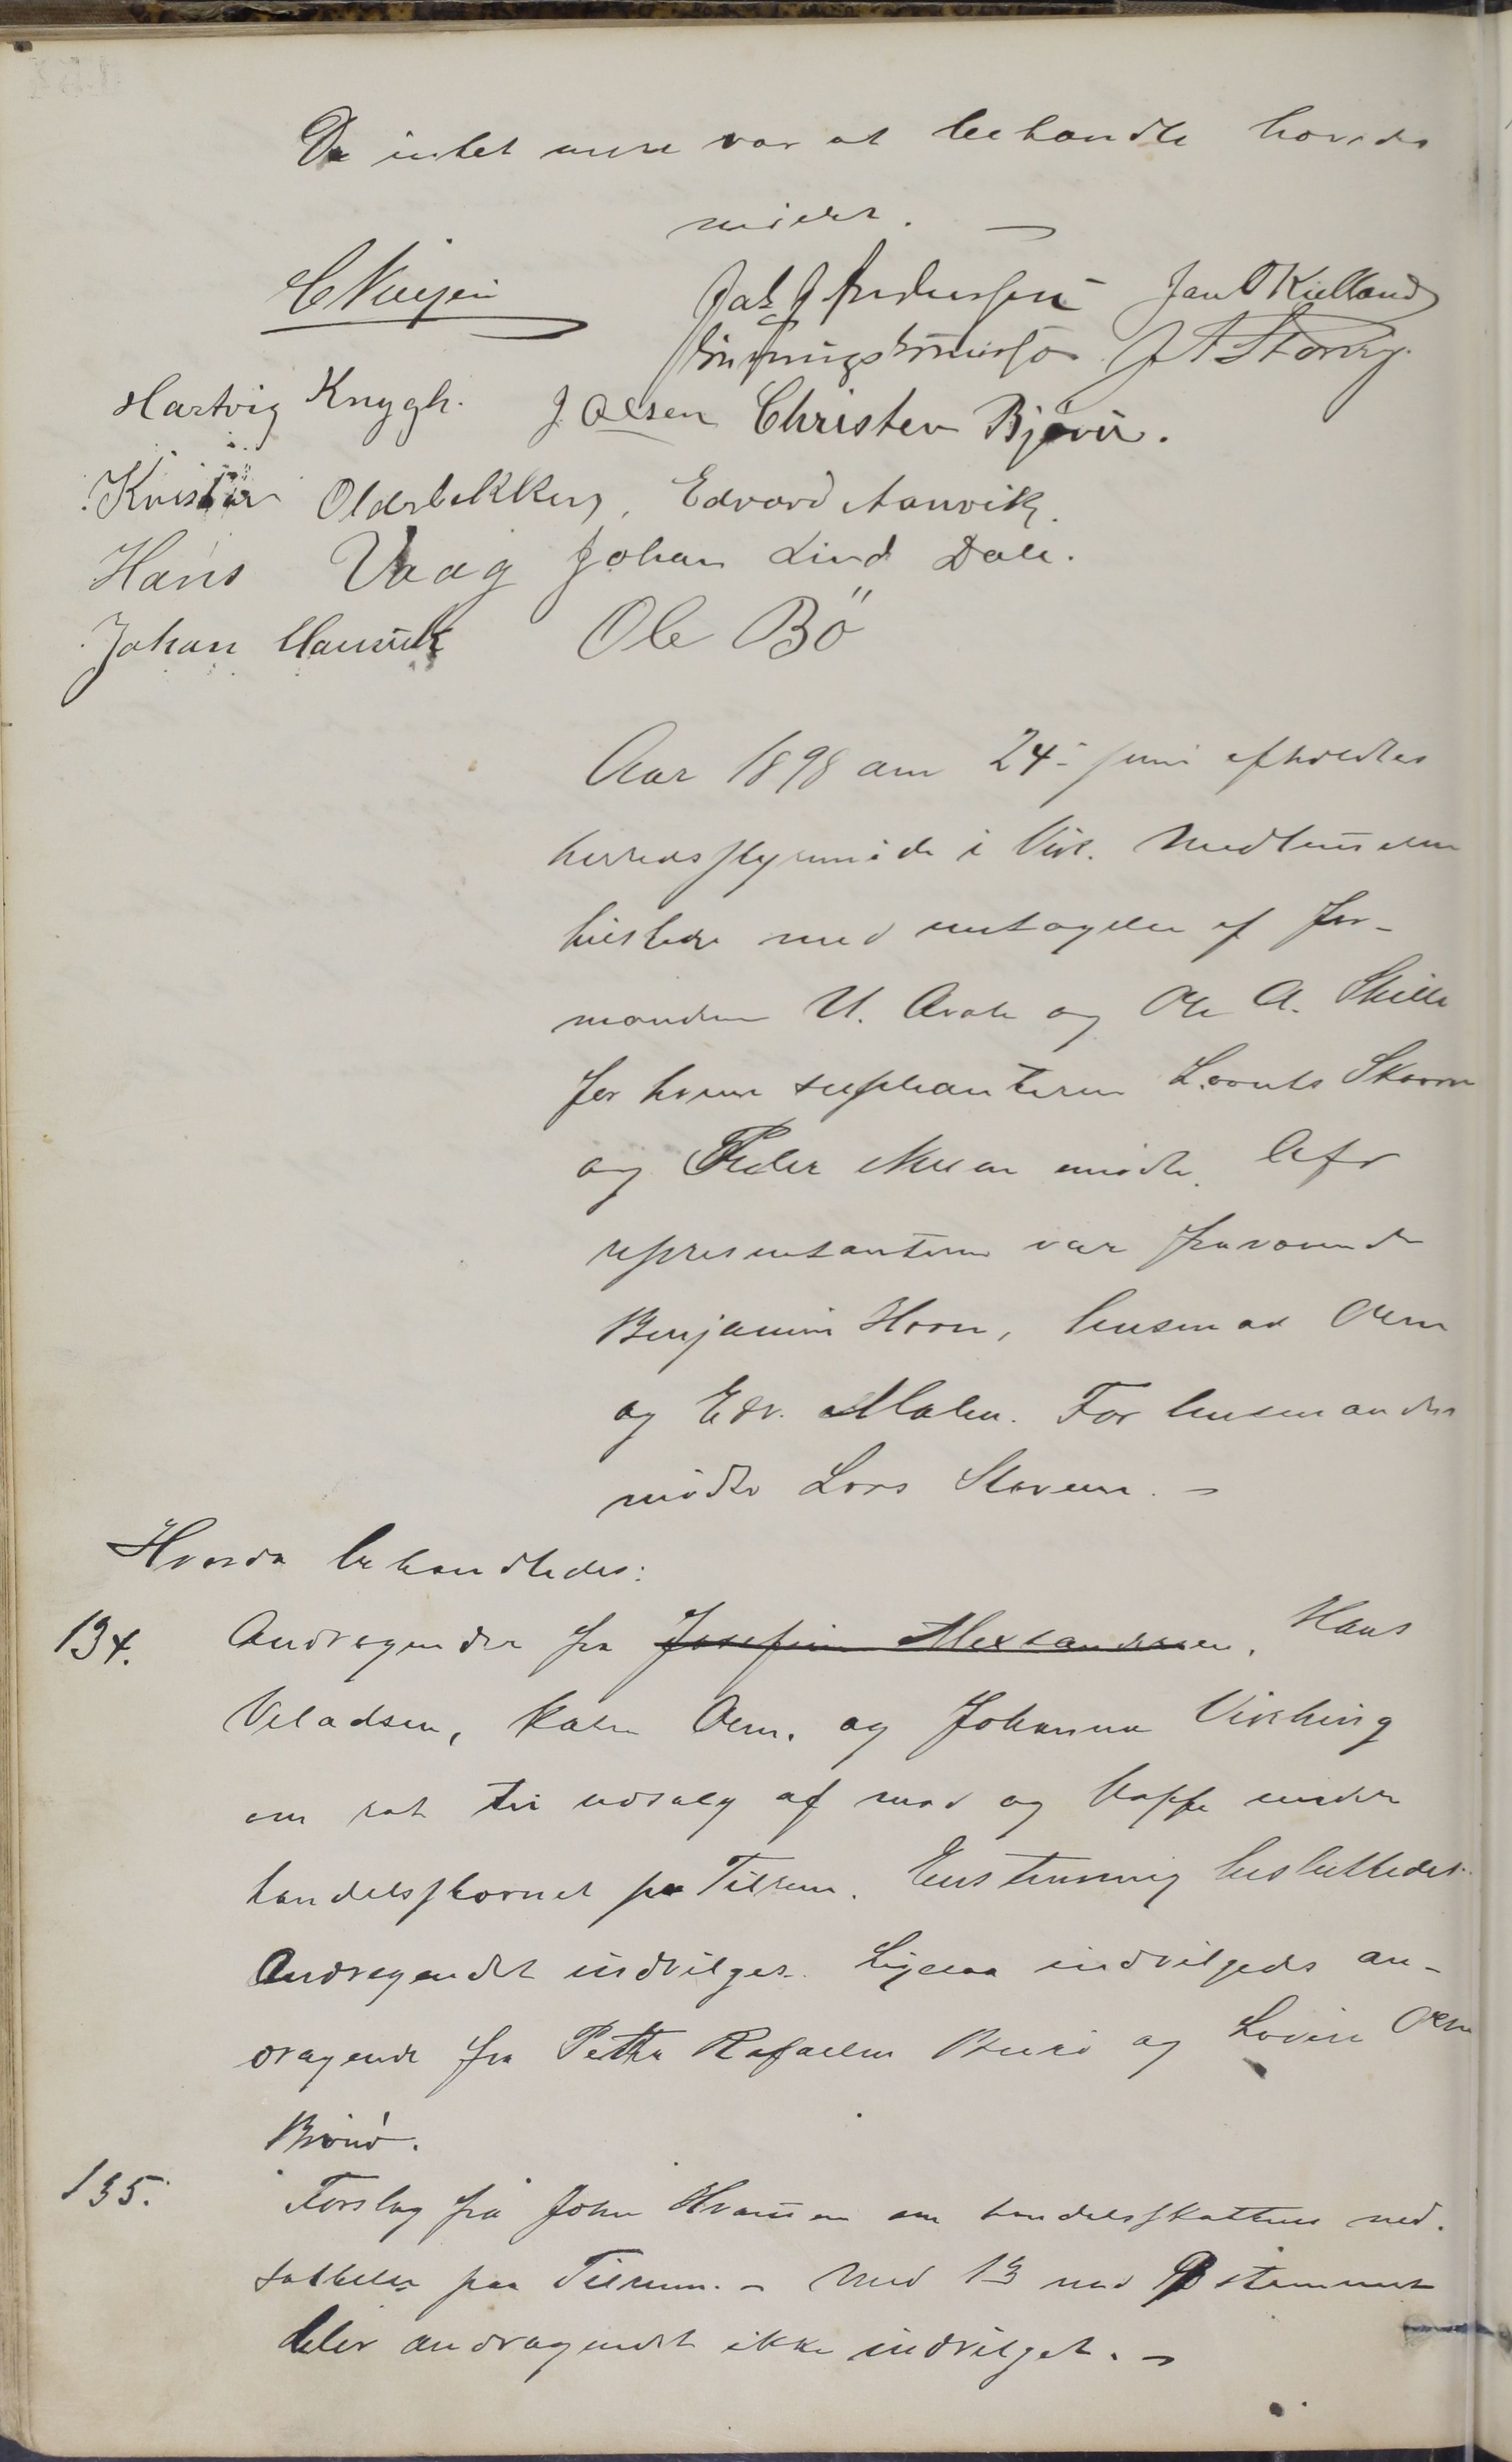 Da intet mere var at behandle hævedes
mödet. —
Jak J Andersen Jan O Kielland
Hartvig Knygh. J Olsen Christen Bjørü.
Oldrbekking, Edvard Aanvik.
Hans Vaag Johan Lind Dale.
Johan Ole Bö
Aar 1898 den 24de juni afholdtes
herredsstyremöde i Vik. Medlemmerne
tilstede med untagelse af for-
manden U. Arole og Ole A. Skille
for hvem suppleanterne Laurits Skarn
og Peder mödte. Af
representanterne var fraværende
Benjamin Horn, lensmand Olsen
og Edv. Malm. For lensmanden
mödte Lars Stavenn. –
Hvorda behandledes:
134. Andragender fra Josefine Alexandersen, Hans
Veladsen, Karen Olsen. og Johanna Vikhing
om ret til udsalg af mad og kaffe under
handelsstevnet paa Tilrem. Enstemmig besluttedes:
Andragendet indvilges. Ligesaa indvilgedes an-
dragende fra Petra Rafaelsen og Lovise Olsen
Brönö.
135. Forslag fra John Hvamen om handelsskattens ned-
sættelse paa Tilrem. – Med 13 mod stemmer
blev andragendet ikke indvilget. –